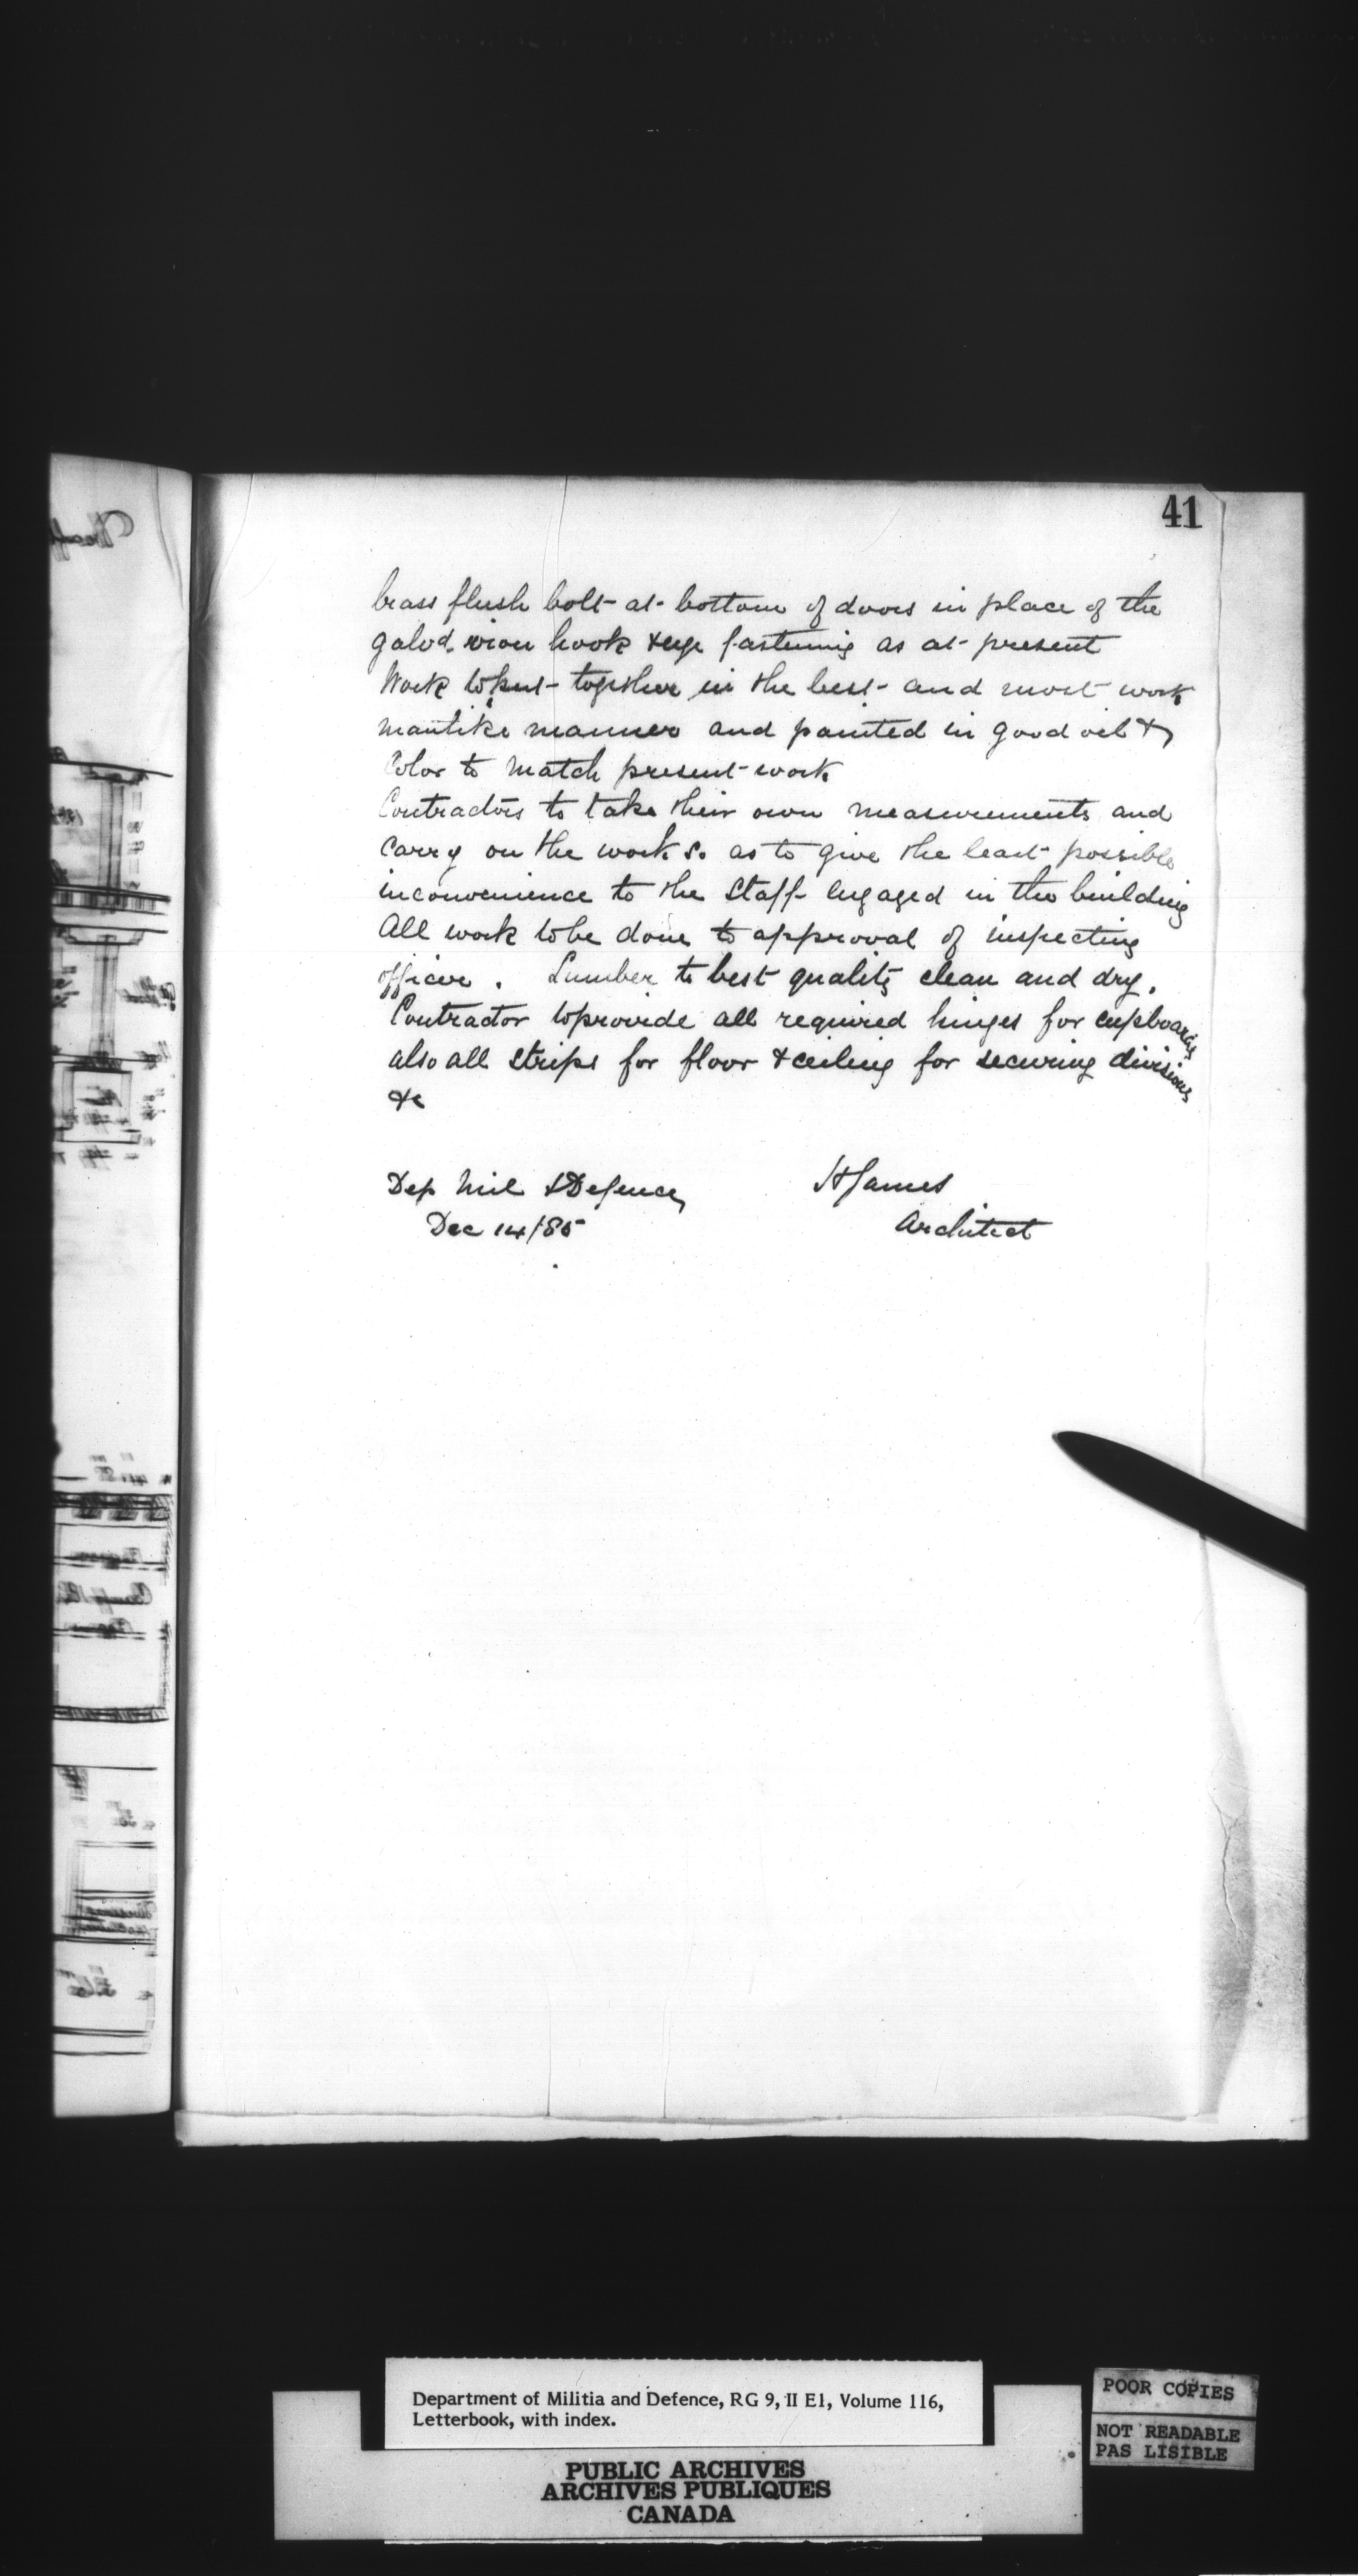 41
brass flush bolt at bottom of doors in place of the
galvd. iron hook & eye fastening as at present
Work to put together in the best and most work
manlike manner and painted in good oil &
Color to match present work
Contractors to take their own measurements and
carry on the work so as to give the least possible
inconvenience to the Staff engaged in the building
All work to be done to approval of inspecting
officer. Lumber to best quality clean and dry.
Contractor to provide all required hinges for cupboards
also all strips for floor & ceiling for securing divisions
&c
Dep Mil & Defence H James
Dec 14/85 Architect
Department of Militia and Defence, RG 9, II E1, Volume 116,
Letterbook, with index.
PUBLIC ARCHIVES
ARCHIVES PUBLIQUES
CANADA
POOR COPIES
NOT READABLE
PAS LISIBLE